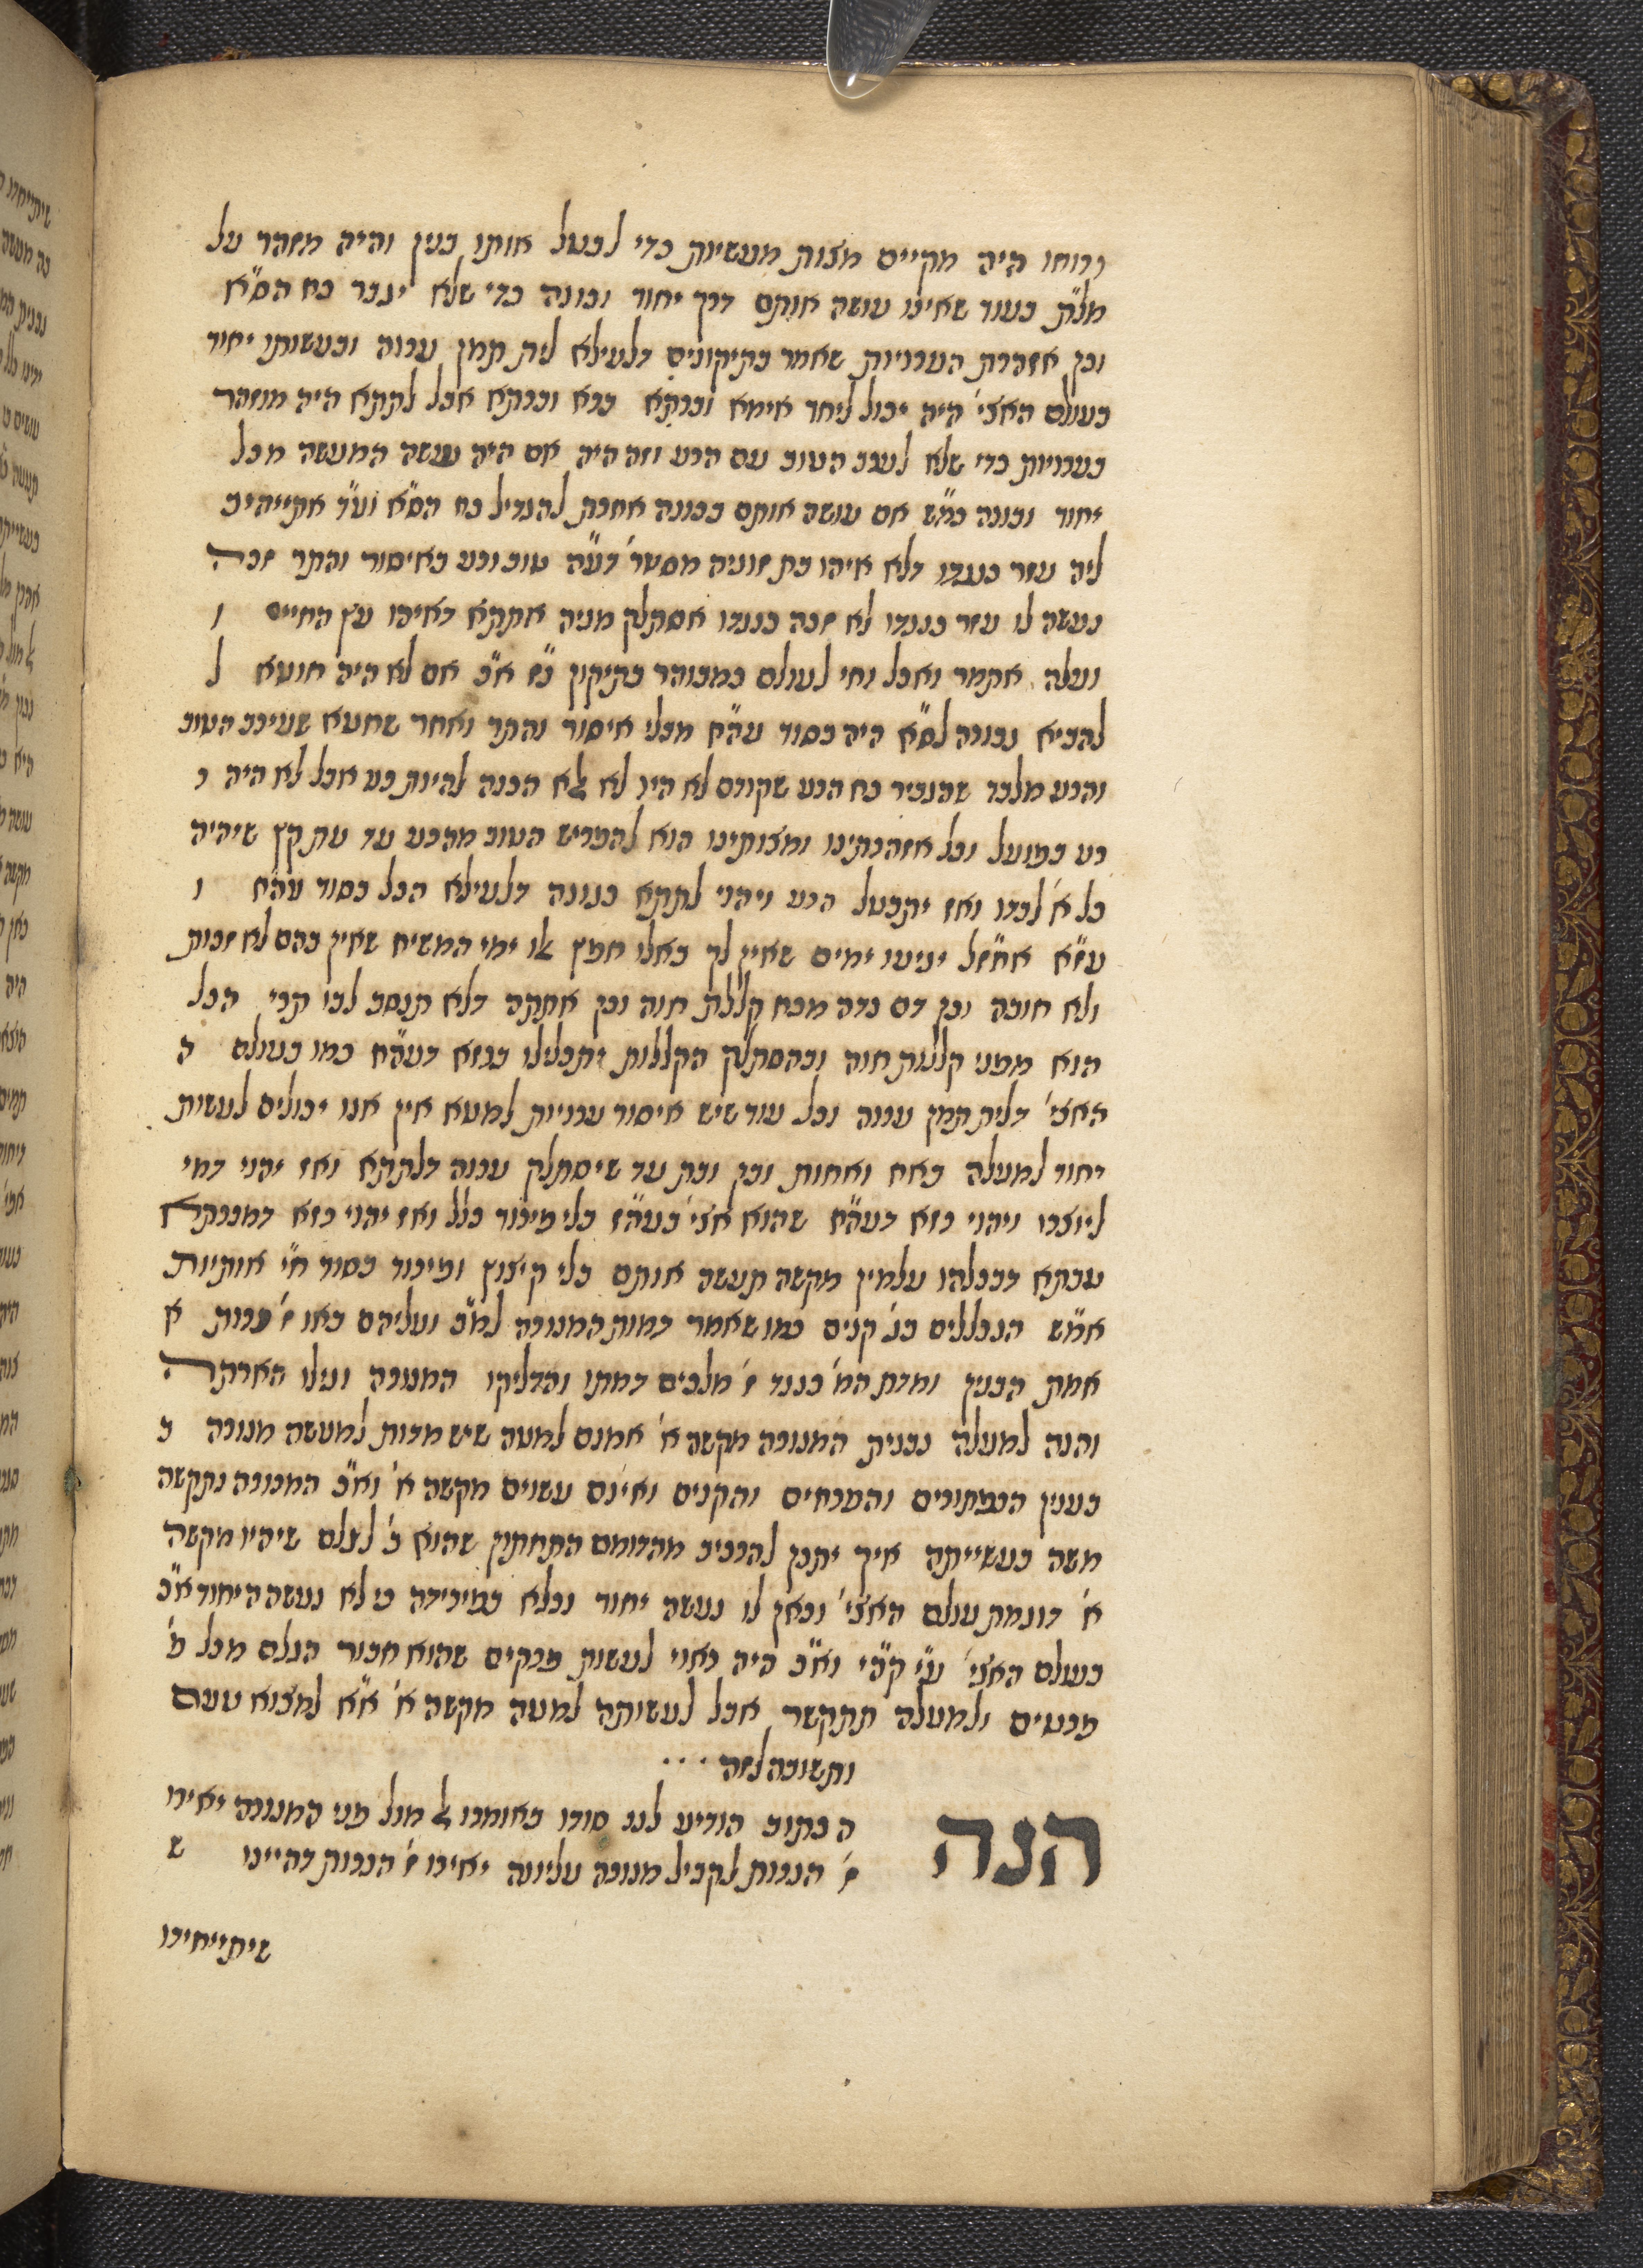 ורוחו היה מקיים מצות מעשיות כדי לבטל אותו בנין והיה מזהר על
מל״ת בעוד שאינו עושה אותם דרך יחוד וכונה כדי שלא יגבר כח הס״א
וכן אזהרת העריות שאמר בתיקונים דלעילא לית תמן ערוה ובעשותו יחוד
בעולם האצי׳ היה יכול ליחד אימא וברתא ברא וברתא אבל לתתא היה מוזהר
בעריות כדי שלא לערב הטוב עם הרע וזה היה אם היה עושה המעשה מבלי
יחוד וכונה כמ״ש אם עושה אותם בכונה אחרת להגדיל כח הס״א וע״ד אתייהיב
ליה עזר כנגדו דלא איהו בת זוגיה מסטר׳ דע״ה טוב ורע באיסור והתר זכה
נעשה לו עזר כנגדו לא זכה כנגדו אסתלק מניה אתתא דאיהו עץ החיים ו
ועלה אתמר ואכל וחי לעולם כמבוהר בתיקון נ״ז א״כ אם לא היה חוטא ל
להביא גבורה לס״א היה בסוד עה״ח מבלי איסור והתר ואחר שחטא שעירב הטוב
והרע מלבד שהגביר כח הרע שקודם לא היו לא אלא הכנה להיות רע אבל לא היה ר
רע בפועל וכל אזהרותינו ומצותינו הוא להפריש הטוב מהרע עד עת קץ שיהיה
כל א׳ לבדו ואז יתבטל הרע ויהוי לתתא כגוונא דלעילא הכל בסוד עה״ח ו
ועז״א אחז״ל יגיעו ימים שאין לך בהם חפץ אלו ימי המשיח שאין בהם לא זכות
ולא חובה וכן דם נדה מכח קללת חוה וכן אתתה דלא תנסב לבו תרי הכל
הוא מפני קללות חוה ובהסתלק הקללות יתכלילו ברזא דעה״ח כמו בעולם ה
האצי׳ דלית תמן ערוה וכל עוד שיש איסור עריות למטא אין אנו יכולים לעשות
יחוד למעלה באח ואחות ובן ובת עד שיסתלק ערוה דלתתא ואז יהוי דמי
ליוצרו ויהוי רזא דעה״ח שהוא אצי׳ בעה״ז בלי פירוד כלל ואז יהוי רזא דמנרתא
ערתא דבכלהו עלמין מקשה תעשה אותם בלי קיצוץ ופירוד בסוד ח״י אותיות
אמ״ש הנכללים בג׳ קנים כמו שאמר דמות המנורה למ״ב ועליהם באו ז׳ נרות א
אמת הבנין ומדת המ׳ כנגד ז׳ מלכים דמתו והדליקו המנורה וגילו הארתה
והנה למעלה נבנית המנורה מקשה א׳ אמנם למטה שיש מדות למעשה מנורה כ
כענין הכפתורים והפרחים והקנים ואינם עשוים מקשה א׳ וא״כ המנורה נתקשה
משה בעשייתה איך יתכן להרכיב מהדומם התחתון שהוא ב׳ לעולם שיהיו מקשה
א׳ דוגמת עולם האצי׳ וכאן לו נעשה יחוד וכלא בפירידה כי לא נעשה היחוד א״כ
בעולם האצי׳ ע״י קה״י וא״כ היה ראוי לעשות פרקים שהוא חבור העולם מכל פ׳
פרטים ולמעלה תתקשר אבל לעשותה למטה מקשה א׳ א״א למצוא טעם
ותשובה לזה . . .
הנה
הכתוב הודיע לנו סודו באומרו אל מול פני המנורה יאירו
ז׳ הנרות לקביל מנורה עליונה יאירו ז׳ הנרות דהיינו ש
שיתייחדו